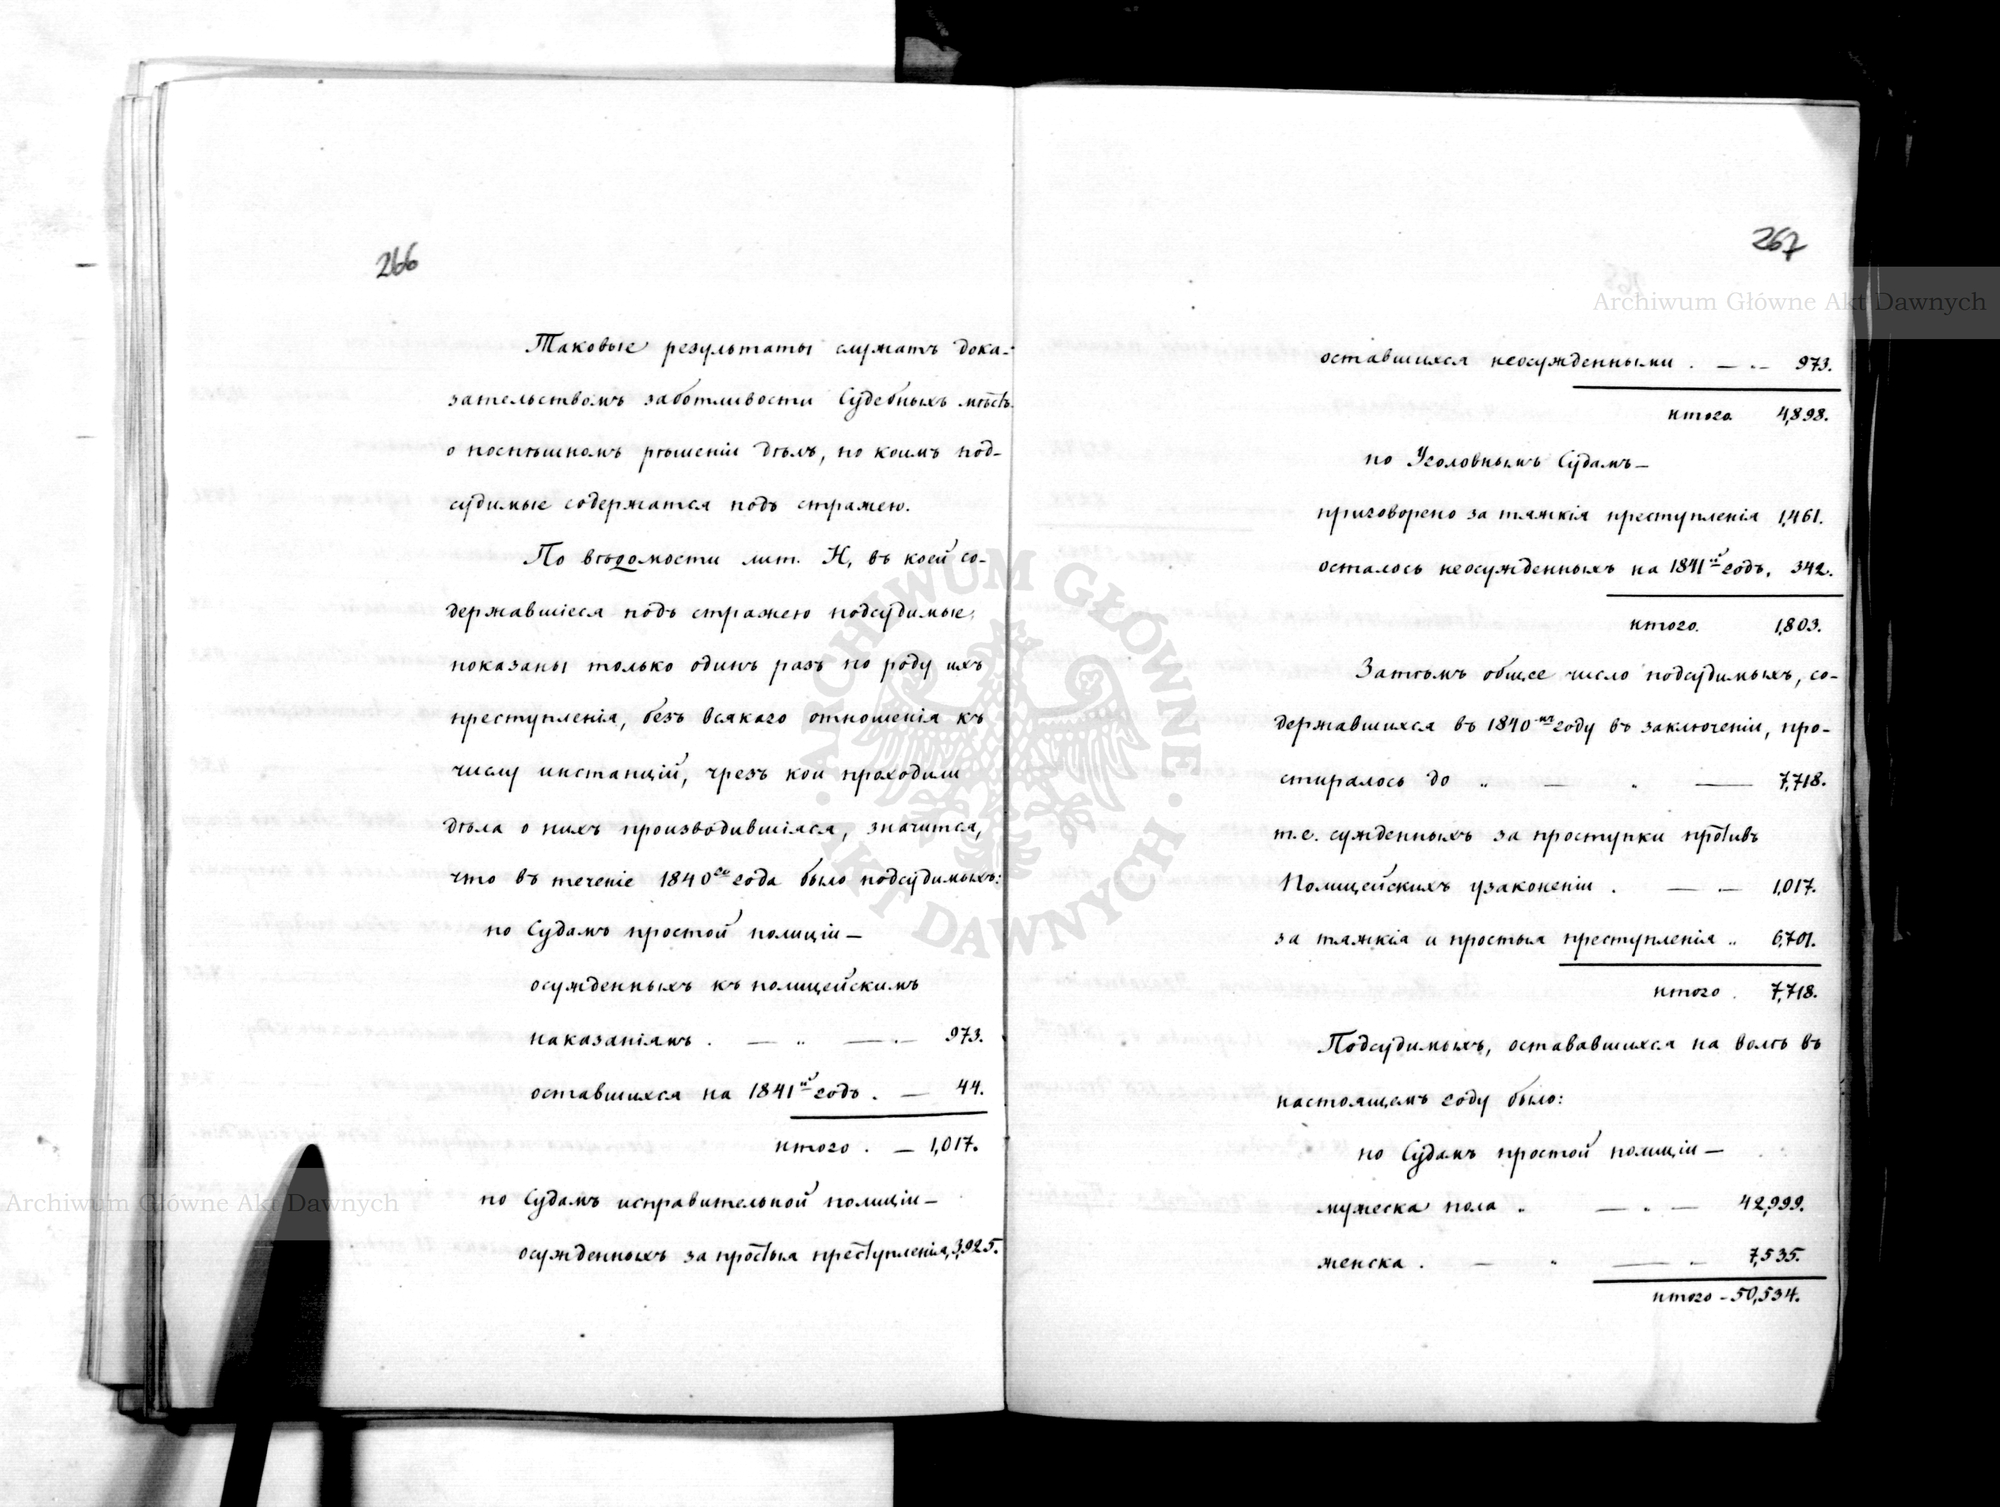 266
Таковые результаты служатъ дока-
зательствомъ заботливости Судебныхъ мѣстъ
о поспѣшномъ рѣшеніи дѣлъ, по коимъ под-
судимые содержатся подъ стражею.
По вѣдомости лит. Н, въ коей со-
державшіеся подъ стражею подсудимые,
показаны только одинъ разъ по роду ихъ
преступленія, безъ всякаго отношенія къ
числу инстанцій, чрезъ кои проходили
дѣла о нихъ производившіяся, значится,
что въ теченіе 1840го года было подсудимыхъ:
по Судамъ простой полиціи —
осужденныхъ къ полицейскимъ
наказаніямъ . — „ — . — 973.
оставшихся на 1841й годъ . — 44.
итого . — 1,017.
по Судамъ исправительной полиціи —
осужденныхъ за простыя преступленія, 3,925.
267
оставшихся неосужденными . — . — 973.
итого 4,898.
по Уголовнымъ Судамъ —
приговорено за тяжкія преступленія 1,461.
осталось неосужденныхъ на 1841й годъ. 342.
итого. 1,803.
Затѣмъ общее число подсудимыхъ, со-
державшихся въ 1840мъ году въ заключеніи, про-
стиралось до „ — „ — 7,718.
т.е. сужденныхъ за проступки противъ
Полицейскихъ узаконеній . — — 1,017.
за тяжкія и простыя преступленія „ 6,701.
итого . 7,718.
Подсудимыхъ, остававшихся на волѣ въ
настоящемъ году было:
по Судамъ простой полиціи —
мужеска пола . — „ — 42,999.
женска . — „ — „ 7,535.
итого - 50,534.
Archiwum Główne Akt Dawnych
Archiwum Główne Akt Dawnych
ARCHIWUM GŁÓWNE
AKT DAWNYCH